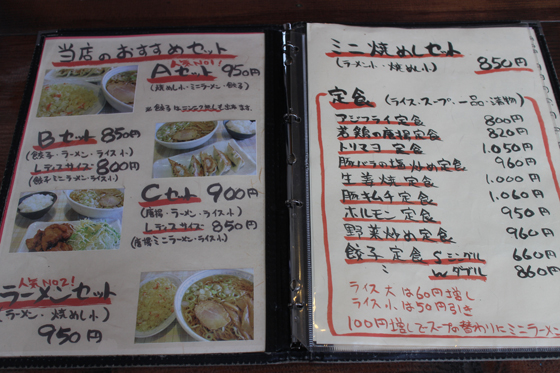 当店のおすすめセット
人気NO1!
Aセット 950円
(焼めし小・ミニラーメン・餃子)
Bセット 850円
(餃子・ラーメン・ライス小)
レディスサイズ 800円
(餃子ミニラーメン・ライス小)
Cセット 900円
(唐揚・ラーメン・ライス小)
レディスサイズ 850円
(唐揚ミニラーメン・ライス小)
人気NO2!
ラーメンセット
(ラーメン・焼めし小)
950円
ミニ焼めしセット
(ラーメン小・焼めし小) 850円
定食 (ライス・スープ・一品・漬物)
アジフライ定食 800円
若鶏の唐揚定食 820円
トリマヨ定食 1.050円
豚バラの塩炒め定食 960円
生姜焼定食 1.000円
豚キムチ定食 1.060円
ホルモン定食 950円
野菜炒め定食 960円
餃子定食 Sシングル 660円
ミ Wダブル 860円
ライス大は60円増し
ライス小は50円引き
100円増しでスープの替わりにミニラーメン